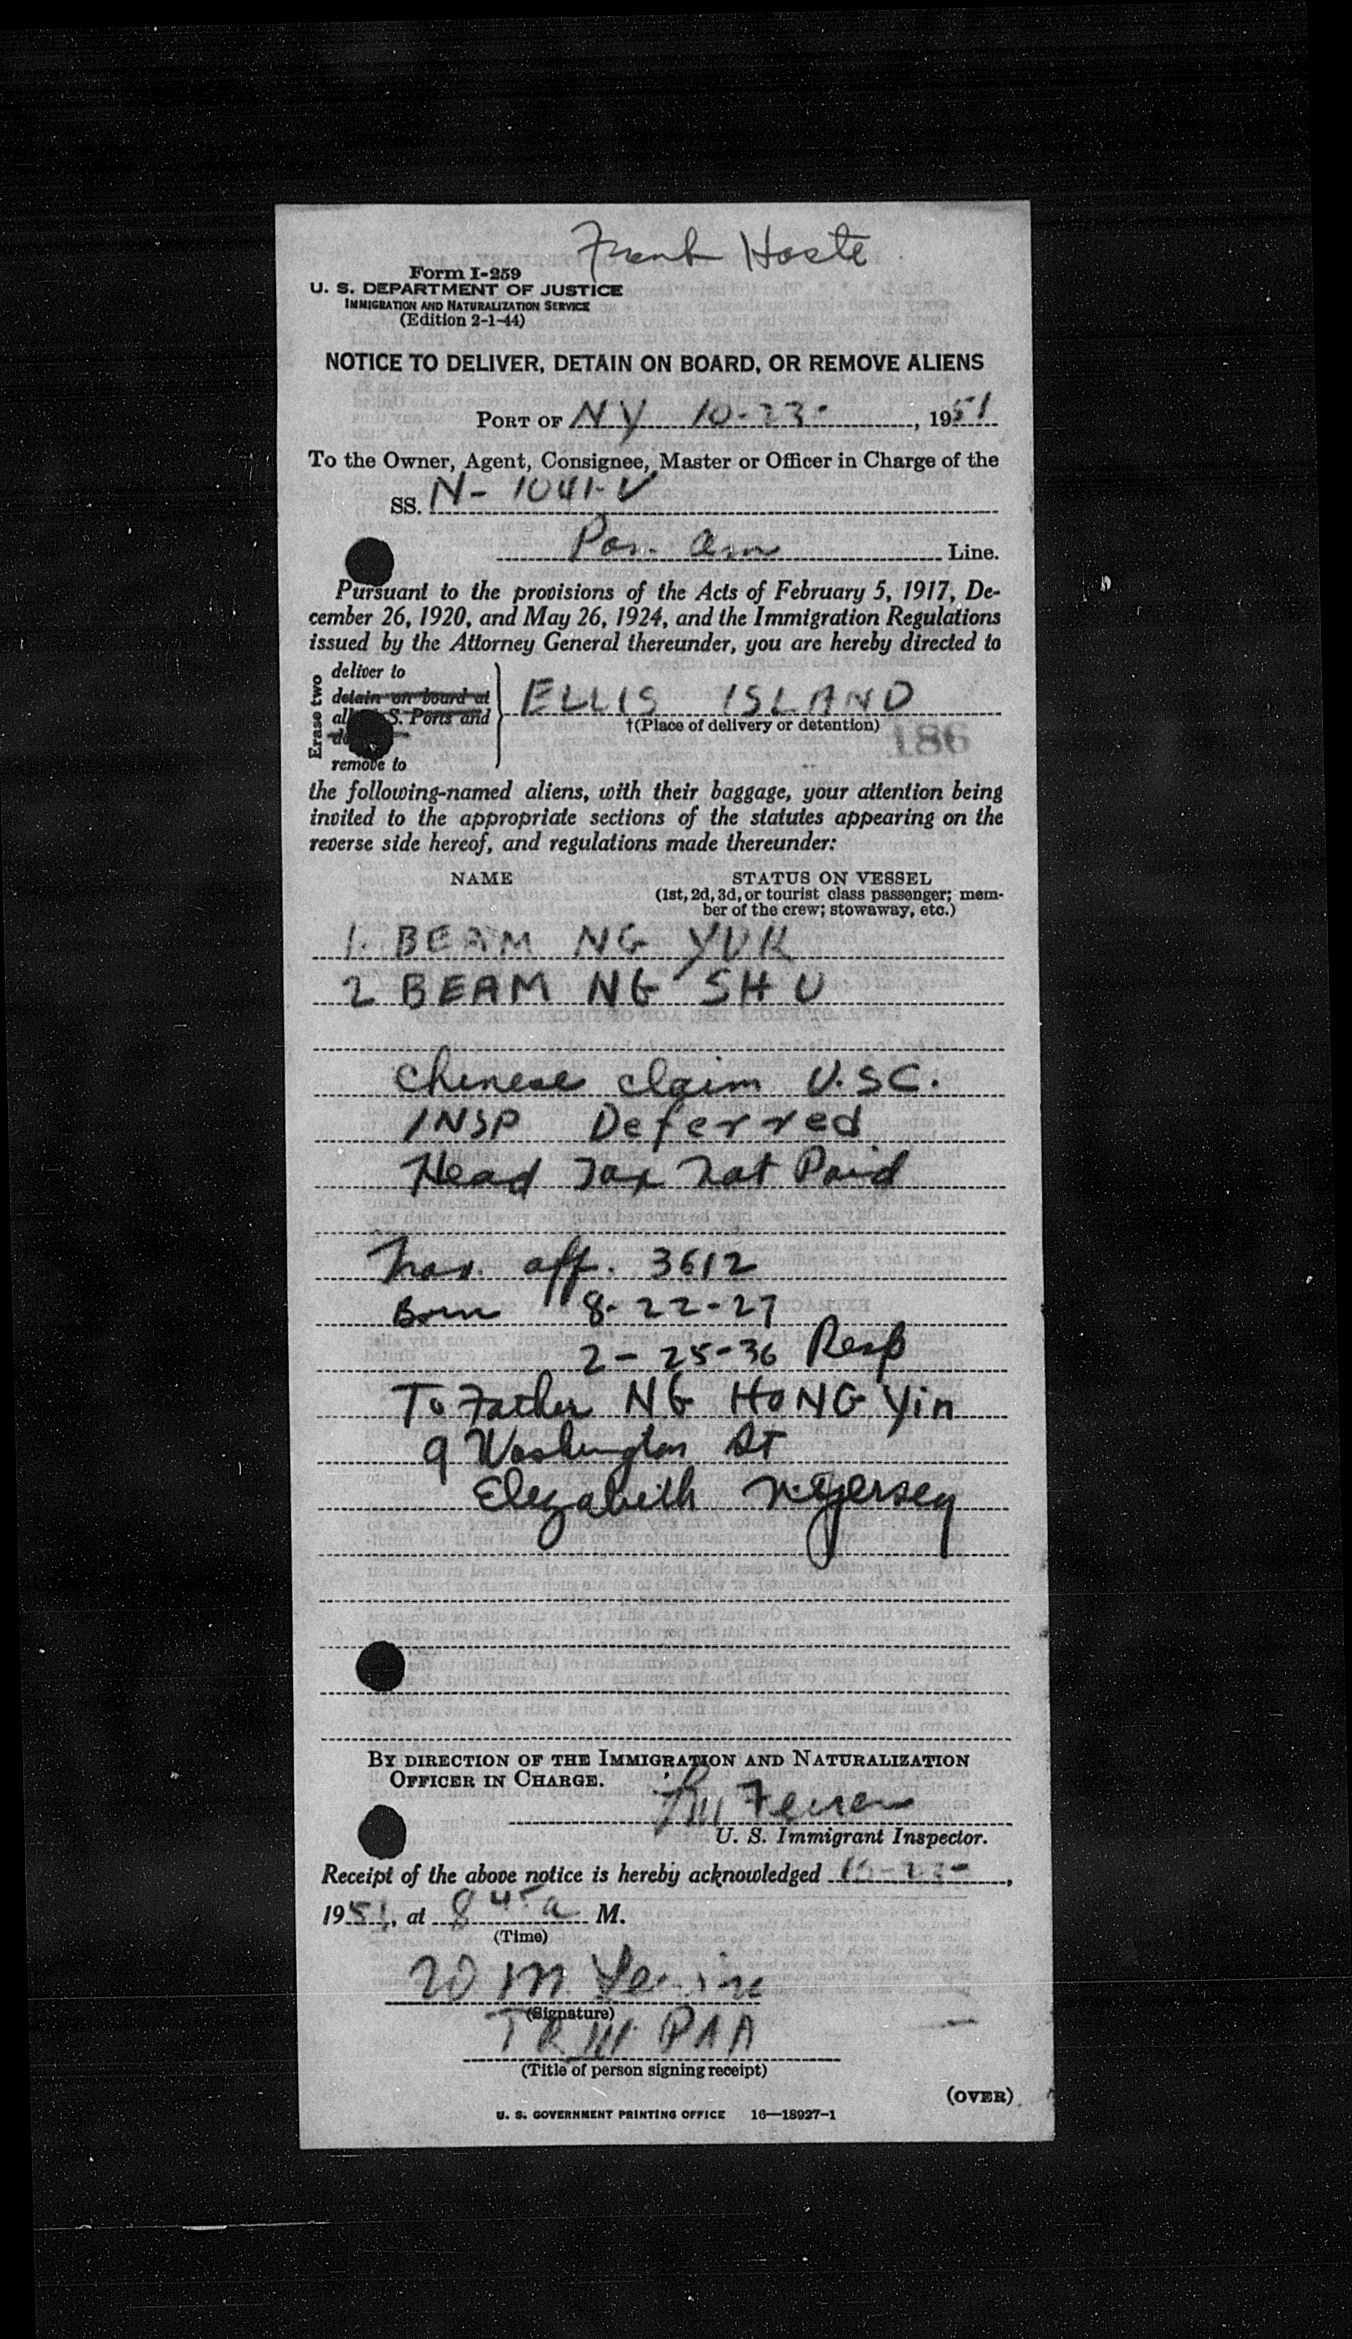 Frank Hoste
Form I-259
U. S. DEPARTMENT OF JUSTICE
IMMIGRATION AND NATURALIZATION SERVICE
(Edition 2-1-44)
NOTICE TO DELIVER, DETAIN ON BOARD, OR REMOVE ALIENS
PORT OF NY 10-23-, 1951
To the Owner, Agent, Consignee, Master or Officer in Charge of the
SS. N-1041-V
Pan. am Line.
Pursuant to the provisions of the Acts of February 5, 1917, De-
cember 26, 1920, and May 26, 1924, and the Immigration Regulations
issued by the Attorney General thereunder, you are hereby directed to
Erase two
deliver to
detain on board at
S. Ports and
remove to
ELLIS ISLAND
†(Place of delivery or detention)
186
the following-named aliens, with their baggage, your attention being
invited to the appropriate sections of the statutes appearing on the
reverse side hereof, and regulations made thereunder:
NAME STATUS ON VESSEL
(1st, 2d, 3d, or tourist class passenger; mem-
ber of the crew; stowaway, etc.)
1. BEAM NG YUK
2 BEAM NG SHU
Chinese claim U.S.C.
INSP Deferred
Head Tax Not Paid
Trav. aff. 3612
Born 8-22-27
2-25-36 Resp
To Father NG HONG Yin
9 Washington St
Elizabeth N.Jersey
BY DIRECTION OF THE IMMIGRATION AND NATURALIZATION
OFFICER IN CHARGE.
U. S. Immigrant Inspector.
Receipt of the above notice is hereby acknowledged 10-23-,
1951, at 845a M.
(Time)
W M
(Signature)
PAA
(Title of person signing receipt)
(OVER)
U. S. GOVERNMENT PRINTING OFFICE 16—18927-1